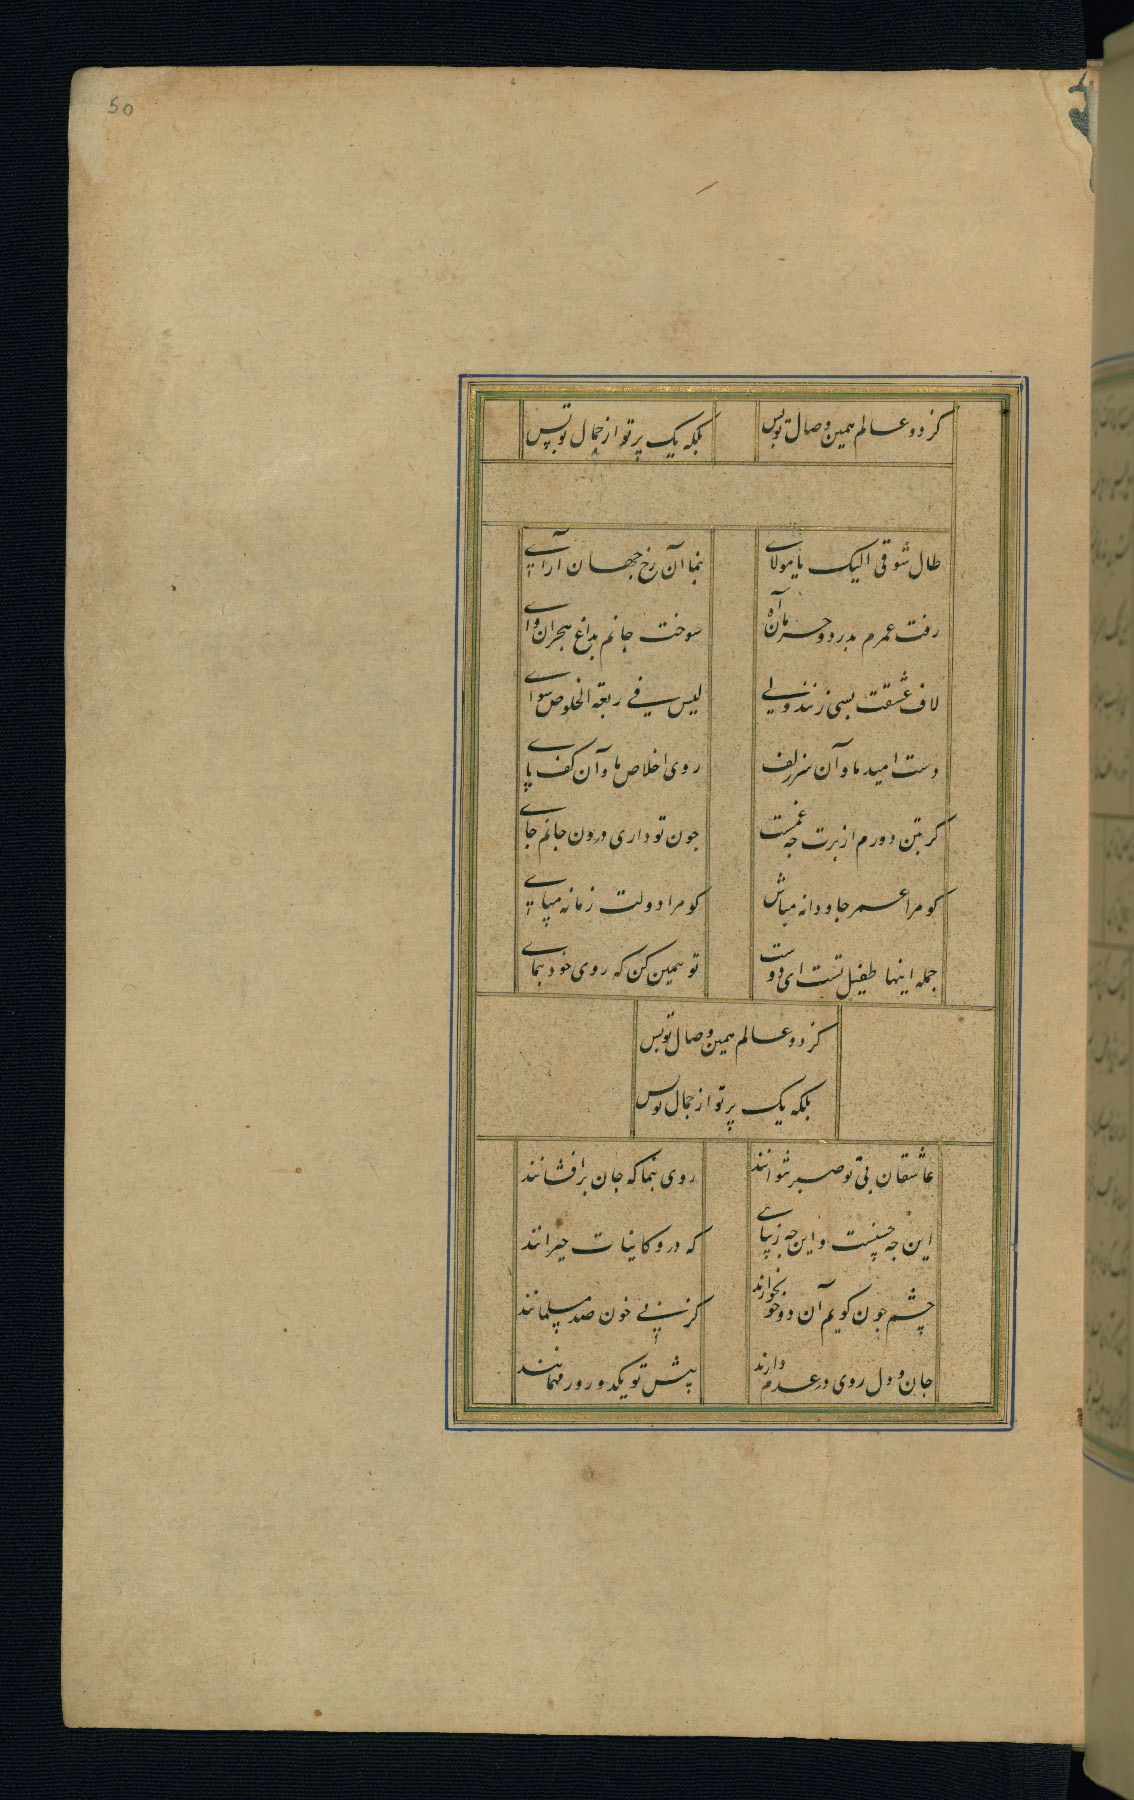 50
کز دو عالم همین وصال تو بس
بلکه یک پرتو از جمال تو بس
طال شوقی الیک یا مولای
بنما آن رخ جهان آرای
رفت عمرم بدرد و حرمان آه
سوخت جانم بداغ هجران وای
لاف عشقت بسی زنند ولی
لیس فی ربقة الخلوص سوای
دست امید ما و آن سر زلف
روی اخلاص ما و آن کف پای
کر بتن دورم از برت چه غمست
چون تو داری درون جانم جای
کو مرا عمر جاودانه مباش
کو مرا دولت زمانه مپای
جمله اینها طفیل تست ای دوست
تو همین کن که روی خود بنمای
کز دو عالم همین وصال تو بس
بلکه یک پرتو از جمال تو بس
عاشقان بی تو صبر نتوانند
روی بنما که جان برافشانند
این چه حسنست و این چه زیبایی
که درو کاینات حیرانند
چشم چون کویم آن دو خونخوارند
کز پی خون صد مسلمانند
جان و دل روی در عدم دارند
پیش تو یکدو روز مهمانند